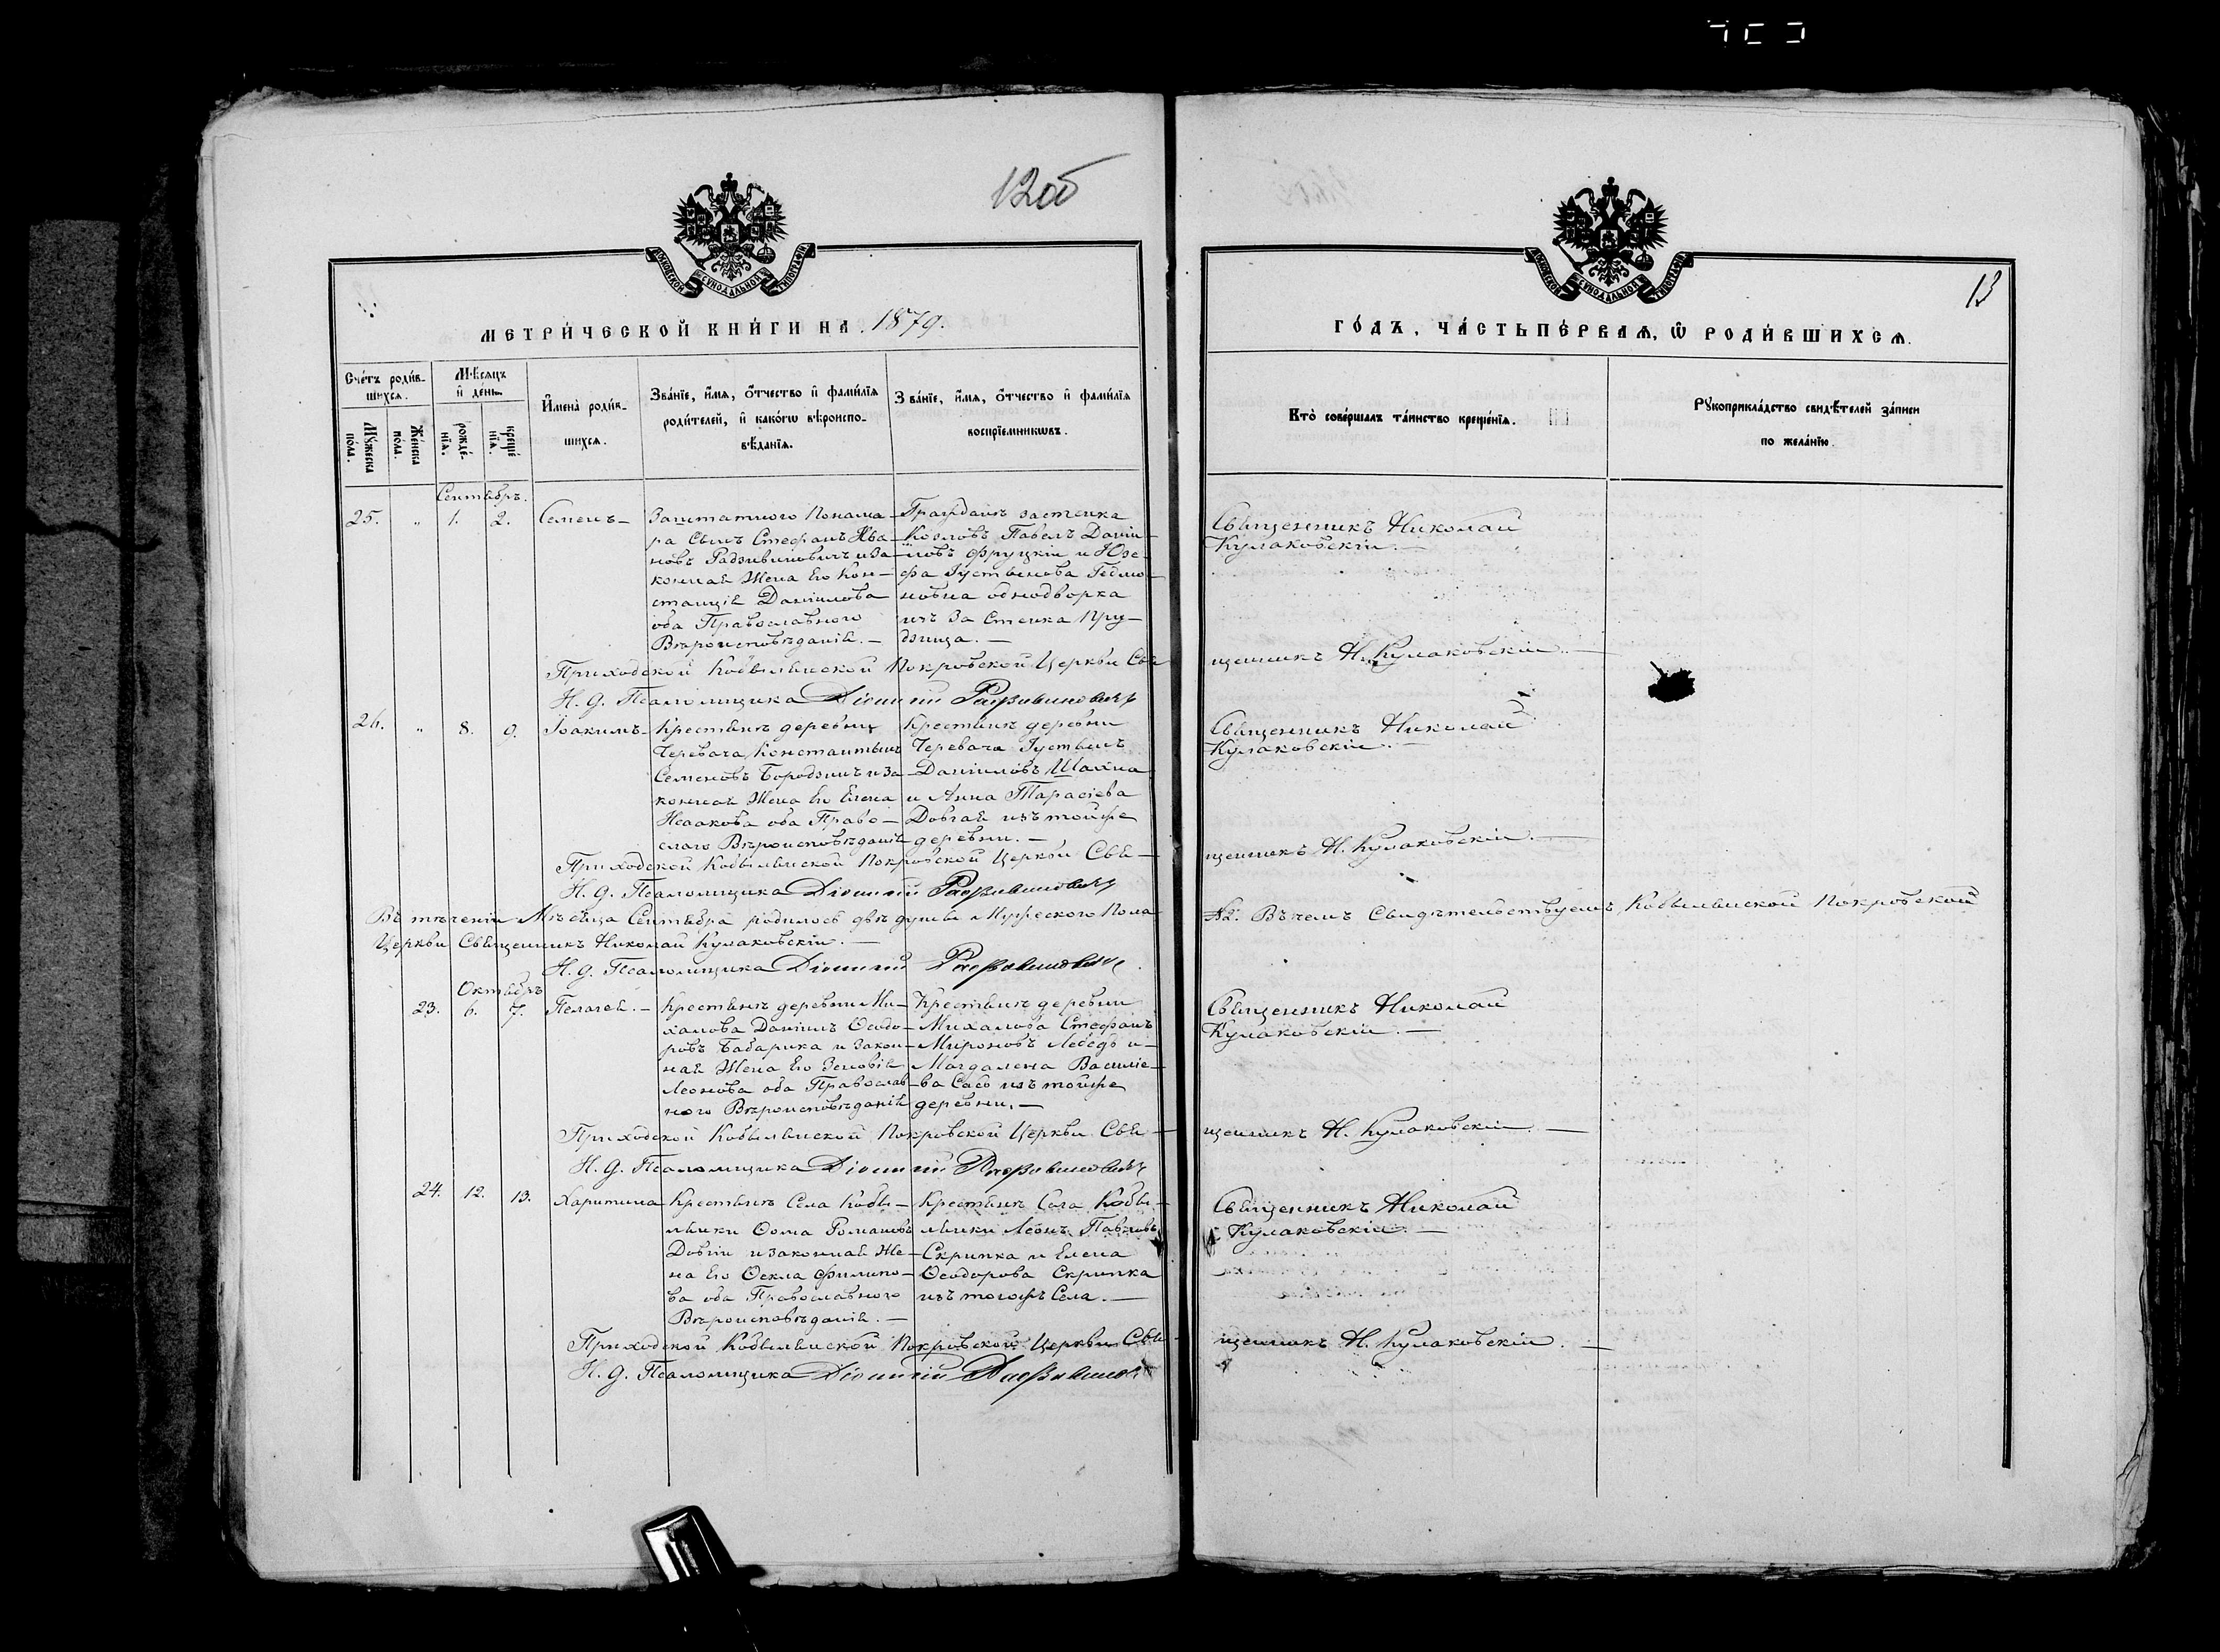 12об
13
МЕТРИ́ЧЕСКОЙ КНИ́ГИ НА 1879.
ГО́ДЪ, ЧА́СТЬ ПЕ́РВАЯ, Ѿ РОДИ́ВШИХСЯ.
Сче́тъ роди́в-
шихся.
Мѣ́сяцъ
и҆ де́нь.
Мꙋ́жеска по́ла.
Же́нска по́ла.
рожде́-
нїя.
креще́-
нїя.
И҆мена̀ роди́в-
шихся.
Зва́нїе, и҆́мя, ѻ҆́тчество и҆ фами́лїя
роди́телей, и҆ како́гѡ вѣроиспо-
вѣ́данїя.
Зва́нїе, и҆́мя, ѻ҆́тчество и҆ фами́лїя
воспрїе́мникѡвъ.
Кто̀ соверша́лъ та́инство креще́нїя.
Рꙋкоприкла́дство свидѣ́телей за́писи
по жела́нїю.
Сентябрь.
25. „ 1. 2. Семенъ
Заштатного Понама-
ра Сынъ Стефанъ Ива-
новъ Радзивиновичъ и За-
конная Жена Его Кон-
станція Даніилова
оба Православного
Вѣроисповѣданія.
Гражданъ застенка
Козловъ Павелъ Даніи-
ловъ Фруцкій и Юзе-
фа Іустинова Гедмо-
новна однодворка
изъ За Стенка Пру-
дзища.
Священникъ Николай
Кулаковскій.
Приходской Кобыльнской Покровской Церкви Свя-
щенникъ Н. Кулаковскій.
И. д. Псаломщика Діонисій Радзивиновичъ
26. „ 8. 9. Іоакимъ
Крестьянъ деревни
Черевача Константинъ
Семеновъ Бородзичъ и За-
конная Жена Его Елена
Исаакова оба Право-
слаго Вѣроисповѣданія
Крестьянъ деревни
Черевача Іустинъ
Даніиловъ Шахна
и Анна Тарасіева
Довгая изъ тойже
деревни.
Священникъ Николай
Кулаковскій.
Приходской Кобыльнской Покровской Церкви Свя-
щенникъ Н. Кулаковскій.
И. д. Псаломщика Діонисій Радзивиновичъ
Въ теченіи Мѣсяца Сентября родилось двѣ души Мужеского Пола
Въ чемъ Свидѣтельствуемъ Кобыльнской Покровской
Церкви Священникъ Николай Кулаковскій.
И. д. Псаломщика Діонисій Радзивиновичъ
Октябрь
23. 6. 7. Пелагея.
Крестьянъ деревни Ми-
халова Даніилъ Ѳеодо-
ровъ Бабарика и Закон-
ная Жена Его Зеновія
Леонова оба Православ-
ного Вѣроисповѣданія
Крестьянъ деревни
Михалова Стефанъ
Мироновъ Лебедь и
Магдалена Василіе-
ва Сасо изъ тойже
деревни.
Священникъ Николай
Кулаковскій.
Приходской Кобыльнской Покровской Церкви Свя-
щенникъ Н. Кулаковскій.
И. д. Псаломщика Діонисій Радзивиновичъ
24. 12. 13. Харитина
Крестьянъ Села Кобы-
льники Ѳома Романовъ
Довгій и законная Же-
на Его Ѳекла Филипо-
ва оба Православного
Вѣроисповѣданія.
Крестьянъ Села Кобы-
льники Леонъ Павловъ
Скрипка и Елена
Ѳеодорова Скрипка
изъ тогожъ Села.
Священникъ Николай
Кулаковскій.
Приходской Кобыльнской Покровской Церкви Свя-
щенникъ Н. Кулаковскій.
И. д. Псаломщика Діонисій Радзивинов